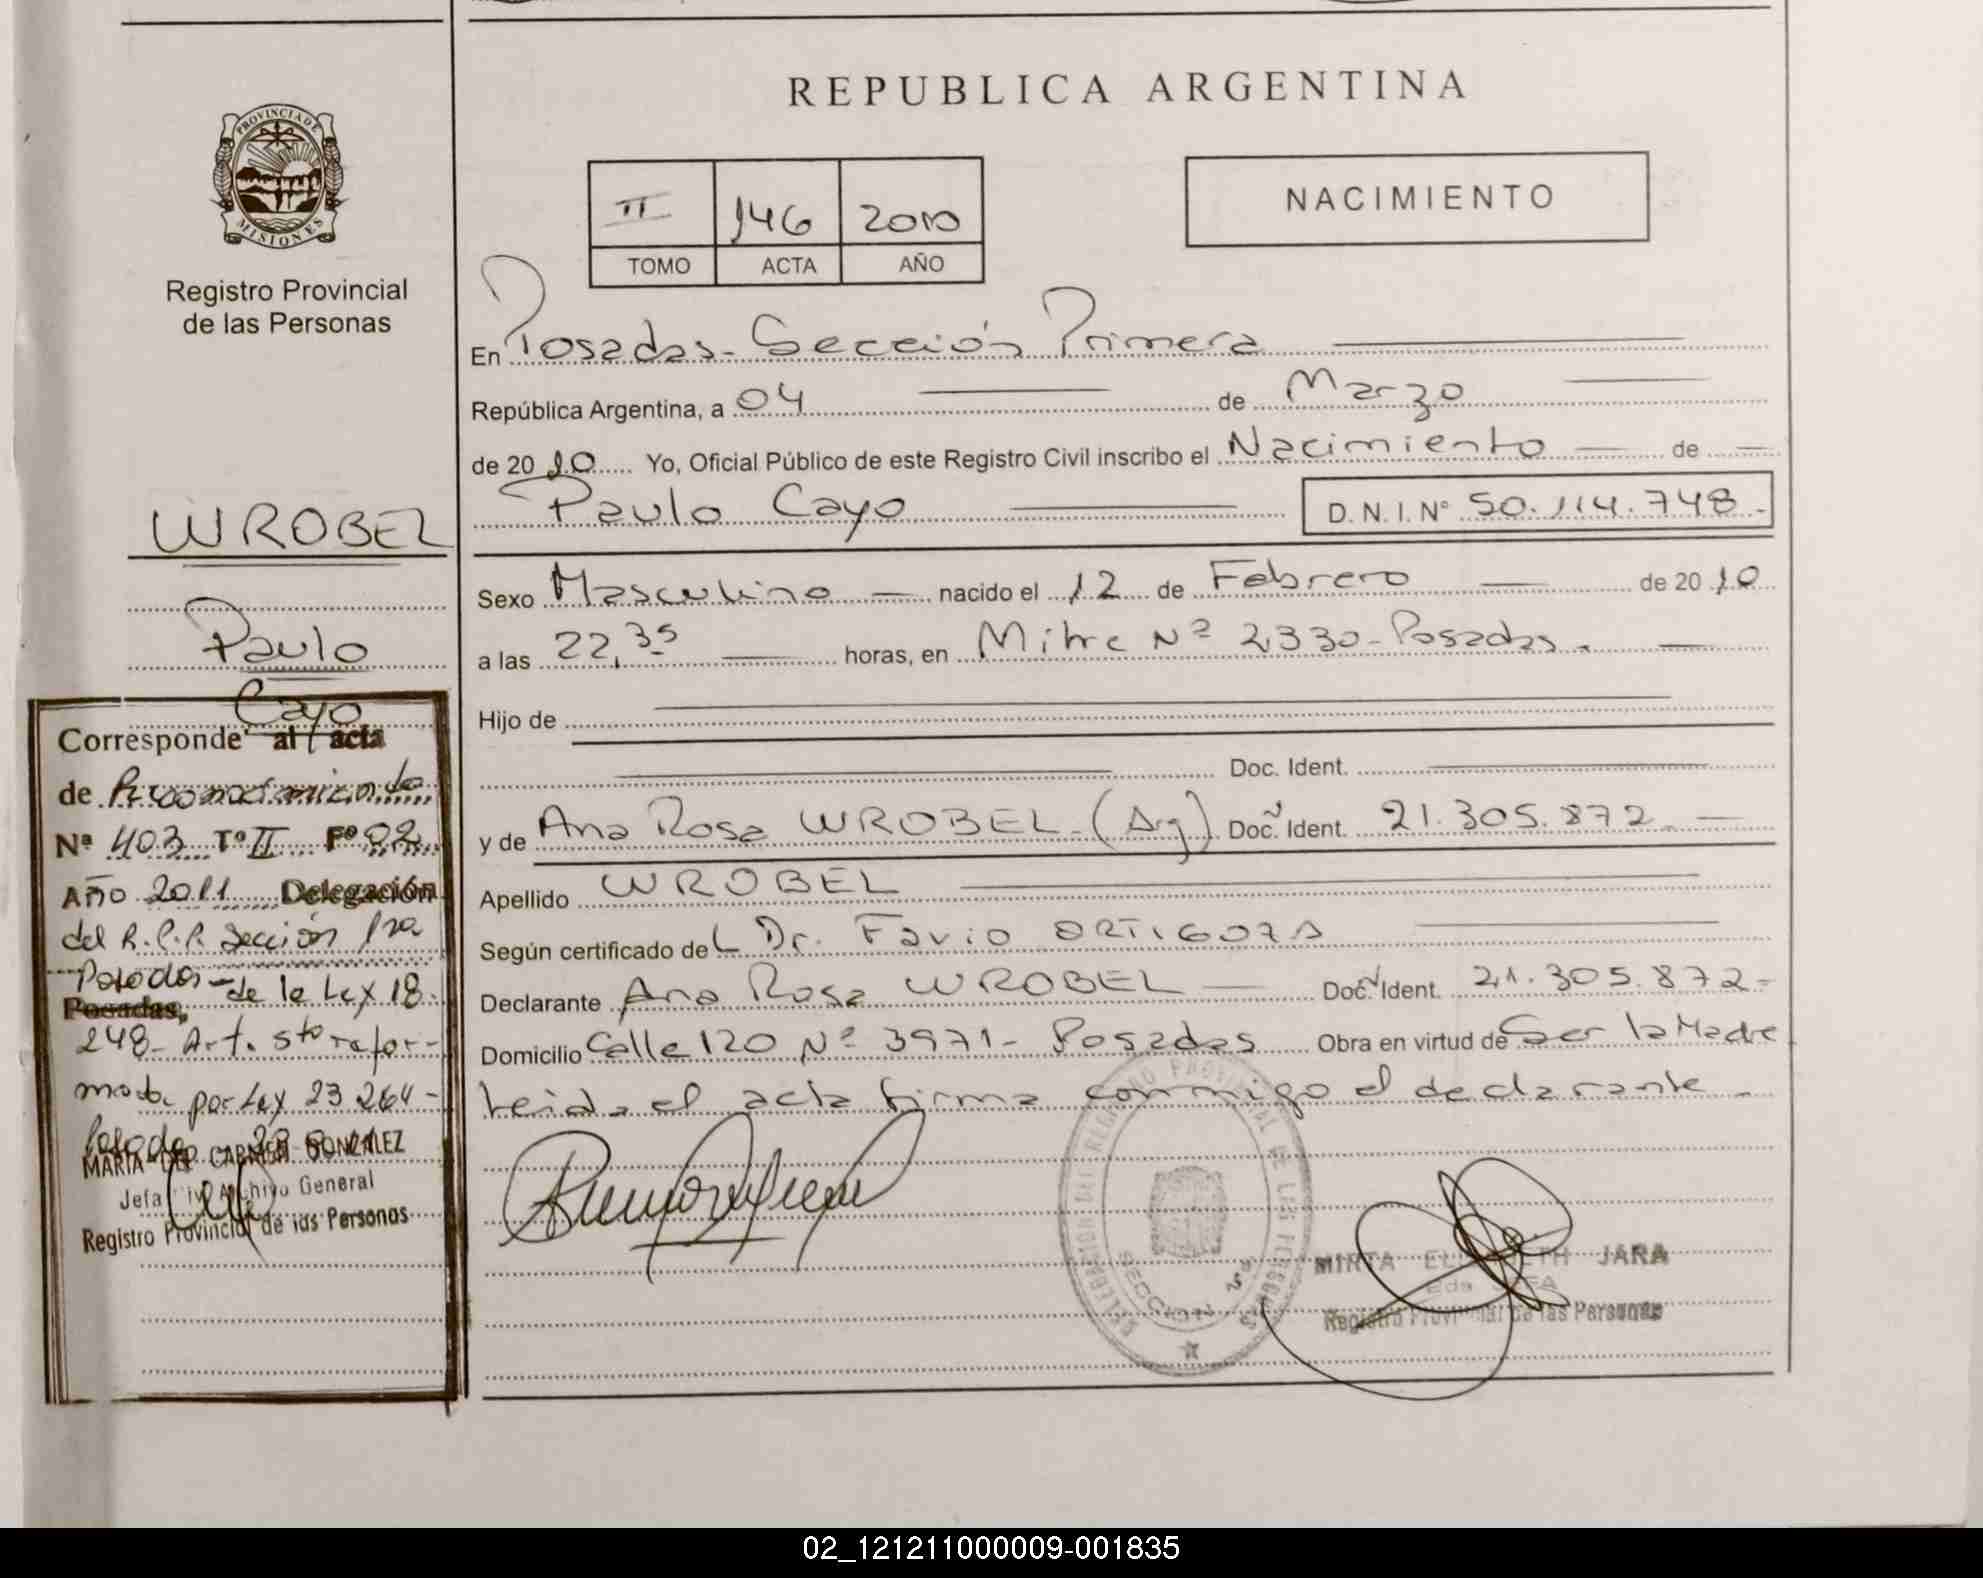 REPUBLICA ARGENTINA
PROVINCIA DE MISIONES
Registro Provincial
de las Personas
II 146 2010
TOMO ACTA AÑO
NACIMIENTO
En Posadas - Sección Primera
República Argentina, a 04 de Marzo
de 2010 Yo, Oficial Público de este Registro Civil inscribo el Nacimiento de
Paulo Cayo D.N.I. Nº 50.114.748.-
Sexo Masculino nacido el 12 de Febrero de 2010
a las 22,35 horas, en Mitre Nº 2330 - Posadas.
Hijo de
Doc. Ident.
y de Ana Rosa WROBEL - (Arg) Doc. Ident. 21.305.872.
Apellido WROBEL
Según certificado del Dr. Favio ORTIGOZA
Declarante Ana Rosa WROBEL Doc. Ident. 21.305.872-
Domicilio Calle 120 Nº 3971 - Posadas Obra en virtud de Ser la Madre
Leida el acta firma conmigo el declarante -
MIRTA ELIZABETH JARA
Registro Provincial de las Personas
WROBEL
Paulo
Cayo
Corresponde al acta
de Reconocimiento
Nº 403 Tº II Fº 02
Año 2011 Delegación
del R.P.P. Sección 1ra
Posadas - de la Ley 18.
Posadas,
248 - Art. 5to refor-
mado por Ley 23.264 -
Posadas
MARIA DEL CARMEN GONZALEZ
Jefa Div. Archivo General
Registro Provincial de las Personas
SECCION
02_121211000009-001835